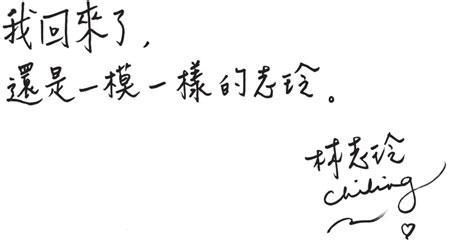 我回來了，
還是一模一樣的志玲。
林志玲
Chiling